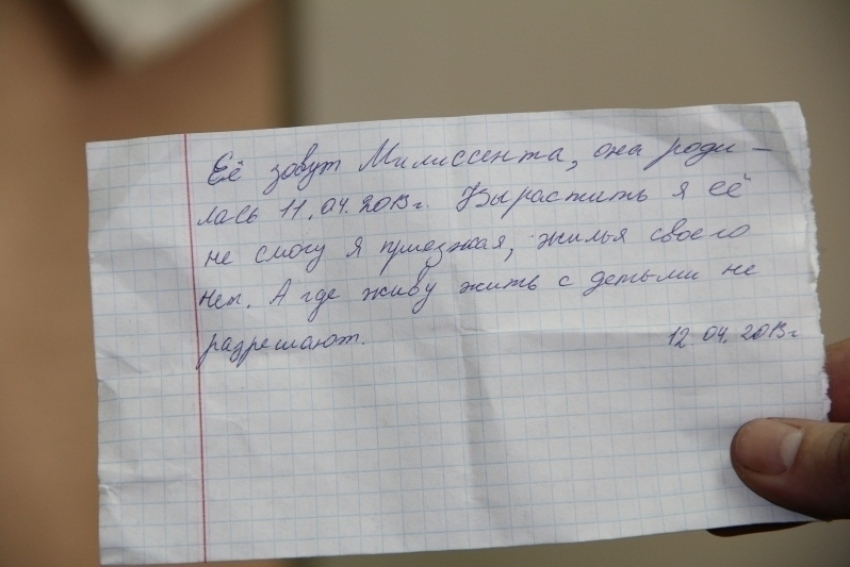 Её зовут Милиссента, она роди-
лась 11.04.2013г. Вырастить я её
не смогу я приезжая, жилья своего
нет. А где живу жить с детьми не
разрешают.
12.04.2013г